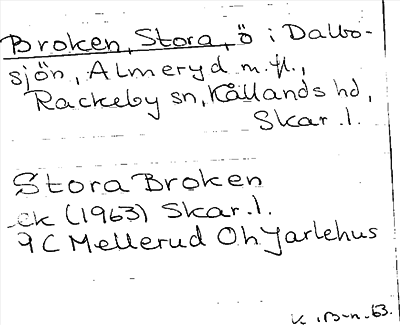 Broken, Stora, ö i Dalbo-
sjön, Almeryd m.fl.,
Rackeby sn, Kållands hd,
Skar. l.
Stora Broken
ek (1963) Skar. l.
9C Mellerud Oh Jarlehus